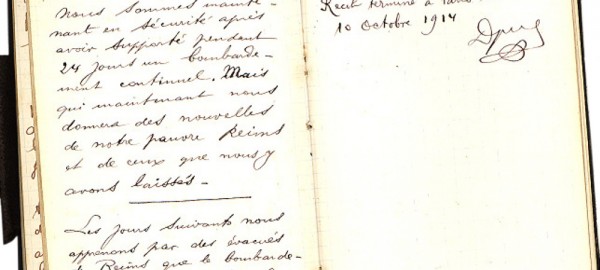 Nous sommes mainte-
nant en sécurité après
avoir supporté pendant
24 jours un bombarde-
ment continuel. Mais
qui maintenant nous
donnera des nouvelles
de notre pauvre Reims
et de ceux que nous y
avons laissés -
Les jours suivants nous
apprenons par des évacués
de Reims que le bombarde-
Récit terminé à Paris
10 Octobre 1914